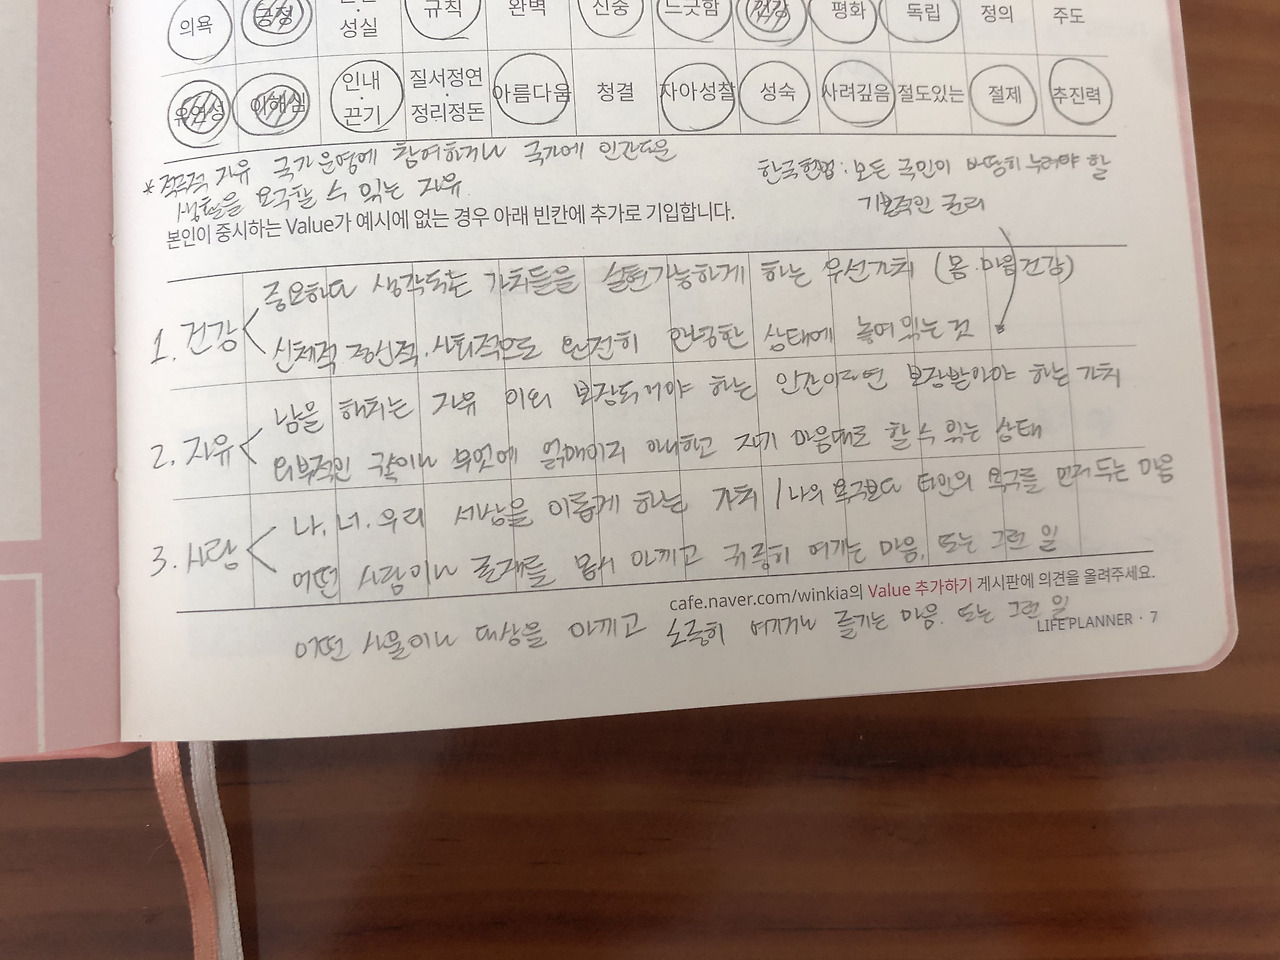 의욕 긍정 성실 규칙 완벽 신중 느긋함 건강 평화 독립 정의 주도
유연성 이해심 인내·끈기 질서정연·정리정돈 아름다움 청결 자아성찰 성숙 사려깊음 절도있는 절제 추진력
* 적극적 자유 국가운영에 참여하거나 국가에 인간다운
생활을 요구할 수 있는 자유
한국헌법: 모든 국민이 마땅히 누려야 할
기본적인 권리
본인이 중시하는 Value가 예시에 없는 경우 아래 빈칸에 추가로 기입합니다.
1. 건강 < 중요하다 생각되는 가치들을 실현가능하게 하는 우선가치 (몸·마음건강)
신체적·정신적·사회적으로 완전히 안녕한 상태에 놓여 있는 것
2. 자유 < 남을 해치는 자유 이외 보장되어야 하는 인간이라면 보장받아야 하는 가치
외부적인 구속이나 무엇에 얽매이지 아니하고 자기 마음대로 할 수 있는 상태
3. 사랑 < 나, 너, 우리 세상을 이롭게 하는 가치 / 나의 욕구보다 타인의 욕구를 먼저 두는 마음
어떤 사람이나 존재를 몹시 아끼고 귀중히 여기는 마음. 또는 그런 일
cafe.naver.com/winkia의 Value 추가하기 게시판에 의견을 올려주세요.
어떤 사물이나 대상을 아끼고 소중히 여기거나 즐기는 마음. 또는 그런 일
LIFE PLANNER · 7